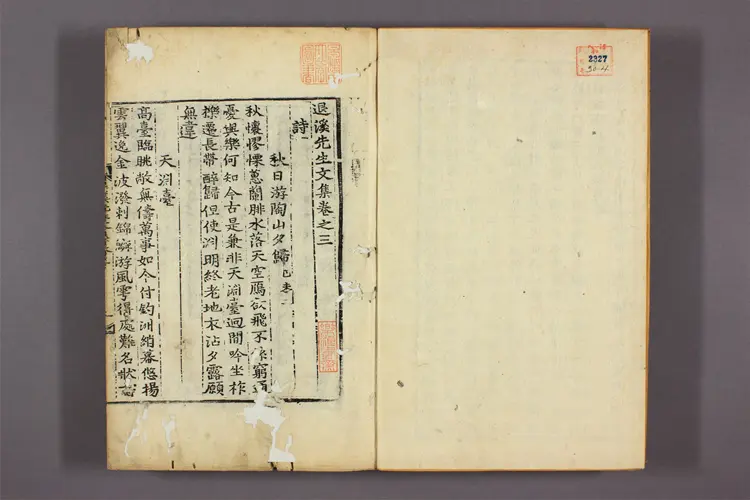 退溪先生文集卷之三
詩
秋日游陶山夕歸
秋懷憀慄蕙蘭腓水落天空鴈欲飛不
憂與樂何知今古是兼非天淵臺迥閒吟坐柞
櫟遷長帶醉歸但使淵明終老地衣沾夕露願
無違
天淵臺
高臺臨眺敞無儔萬事如今付釣洲綃幕悠揚
雲翼逸金波潑剌錦鱗游風雩得處難名狀
2327